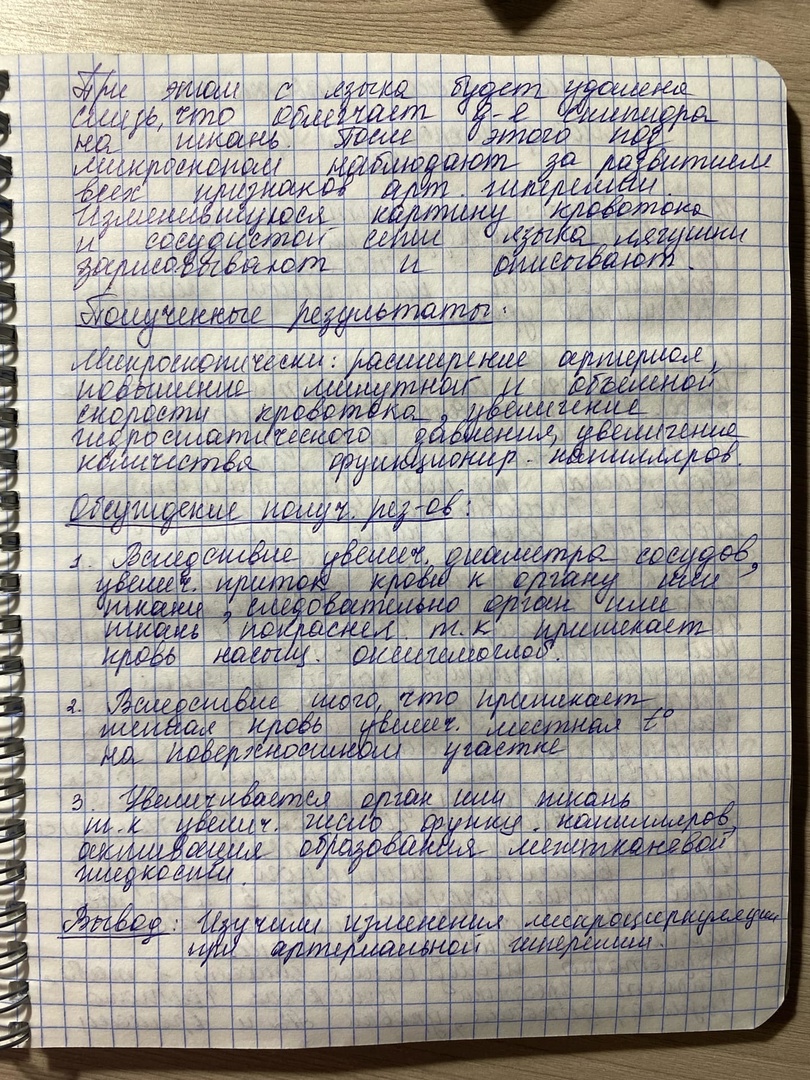 При этом с языка будет удалена
слизь, что облегчает д-е скипидра
на ткань. После этого под
микроскопом наблюдают за развитием
всех признаков арт. гиперемии.
Изменившуюся картину кровотока
и сосудистой сети языка лягушки
зарисовывают и описывают.
Полученные результаты:
Микроскопически: расширение артериол,
повышение минутной и объемной
скорости кровотока, увеличение
гидростатического давления, увеличение
количества функционир. капилляров.
Обсуждение получ. рез-ов:
1. Вследствие увелич. диаметра сосудов,
увелич. приток крови к органу или
ткани, следовательно орган или
ткань покраснел т.к притекает
кровь насыщ. оксигемоглоб.
2. Вследствие того, что притекает
теплая кровь увелич. местная t°
на поверхностном участке
3. Увеличивается орган или ткань
т.к увелич. число функц. капилляров,
активация образования межтканевой
жидкости.
Вывод: Изучили изменения микроциркуляции
при артериальной гиперемии.